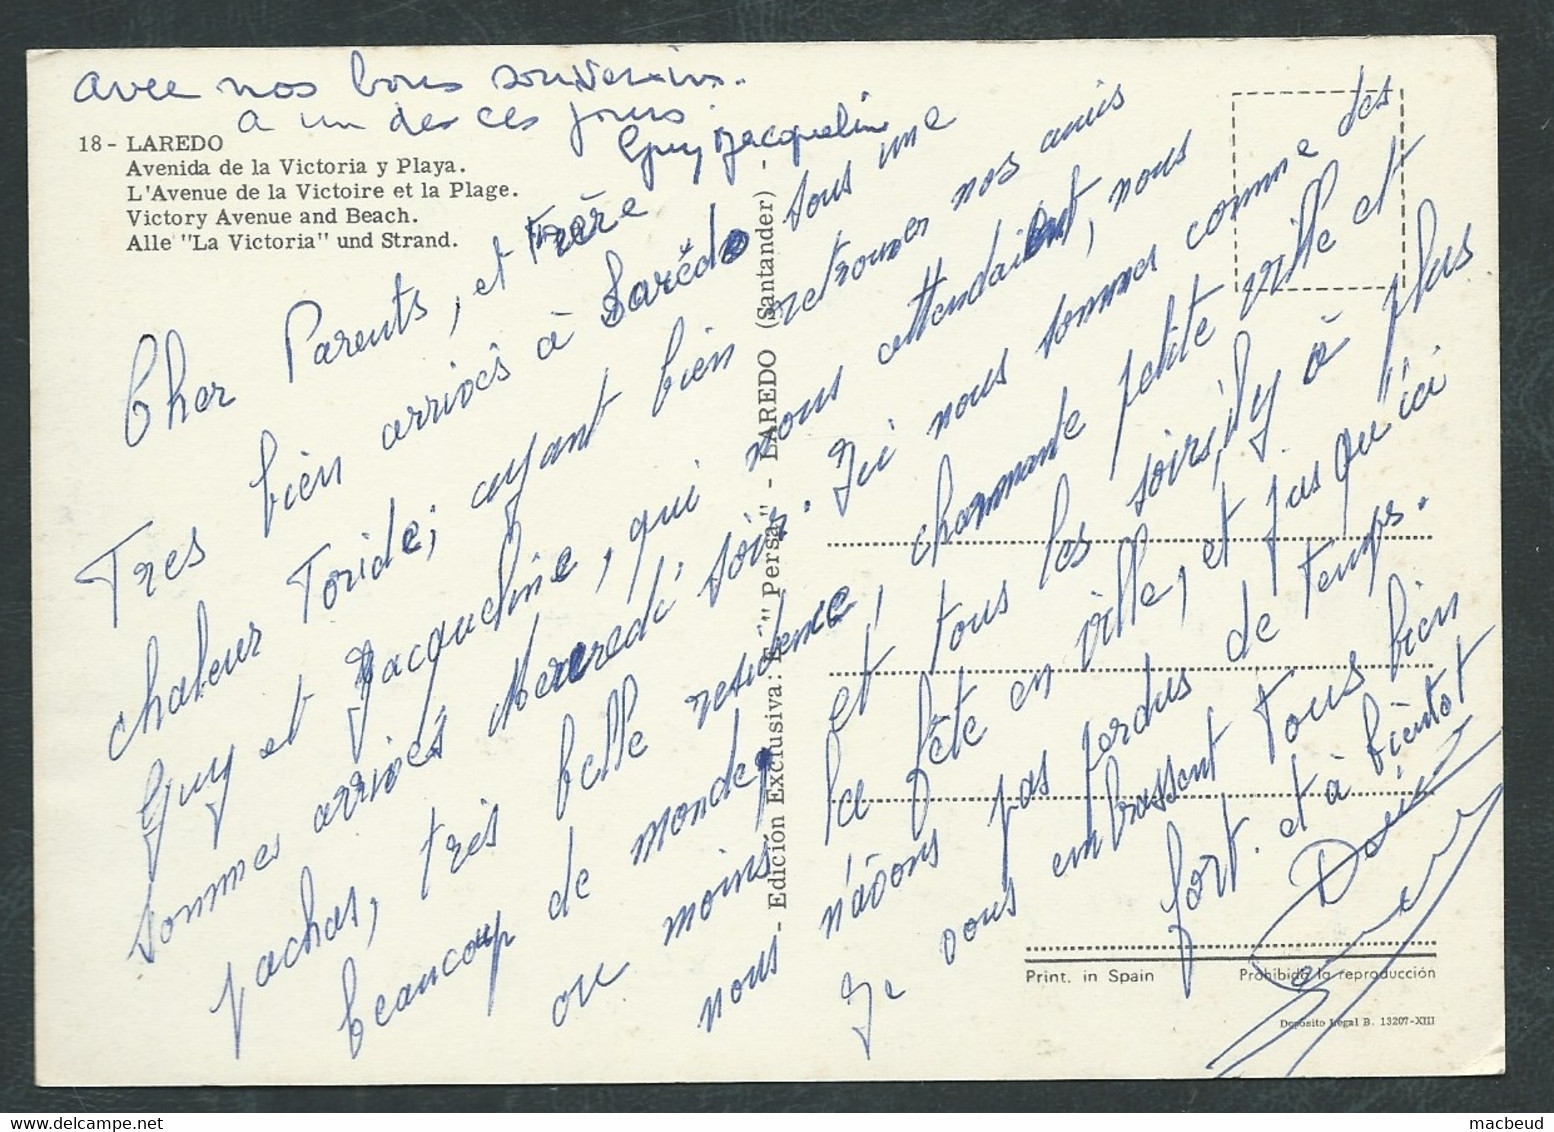 avec nos bons souvenirs.
a un de ces jours.
Guy Jacqueline
18 - LAREDO
Avenida de la Victoria y Playa.
L'Avenue de la Victoire et la Plage.
Victory Avenue and Beach.
Alle "La Victoria" und Strand.
Cher Parents, et Frère
Tres bien arrivés à Larédo sous une
chaleur Toride; ayant bien retrouver nos amis
Guy et Jacqueline, qui nous attendaient, nous
sommes arrivés Mercredi soir. Ici nous sommes comme des
pachas, très belle residence, charmante petite ville et
beaucoup de monde, et tous les soirs, il y à plus
ou moins la fête en ville, et jusqu'ici
nous n'avons pas perdus de temps.
Je vous embrassent tous bien
fort. et à bientot
- Edición Exclusiva: E "Persa" - LAREDO (Santander) -
Print. in Spain
Prohibida la reproducción
Depósito Legal B. 13207-XIII
macbeud